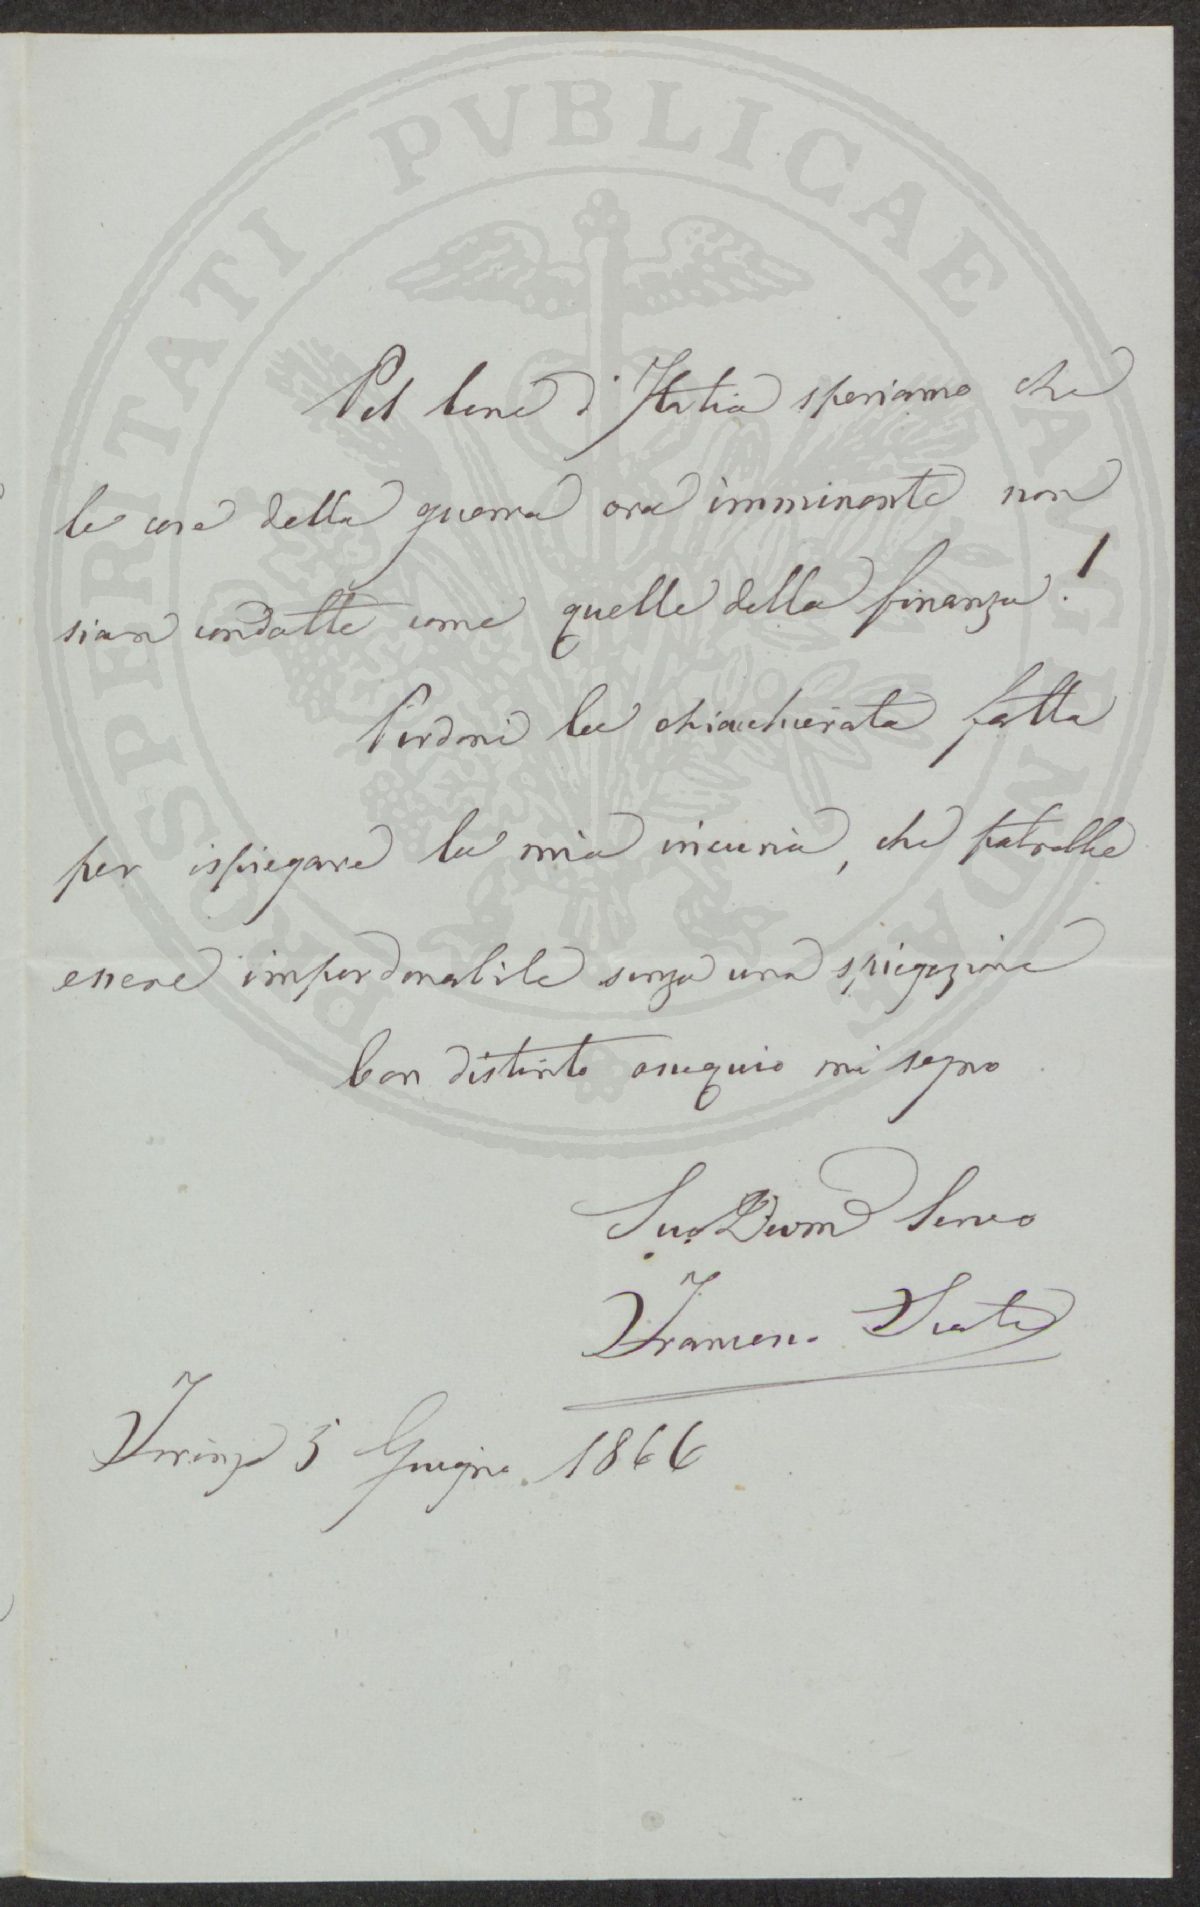 PROSPERITATI PVBLICAE AVGENDAE
Pel bene d'Italia speriamo che
le cose della guerra ora imminente non
sian condotte come quelle della finanza!
Perdoni la chiacchierata fatta
per ispiegare la mia incuria, che potrebbe
essere imperdonabile senza una spiegazione
Con distinto ossequio mi segno
Suo Devm Servo
Francesco
Firenze 5 Giugno 1866